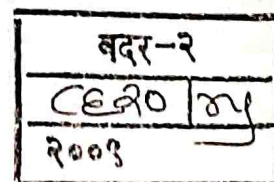 बदर-२
८६२०
२००९